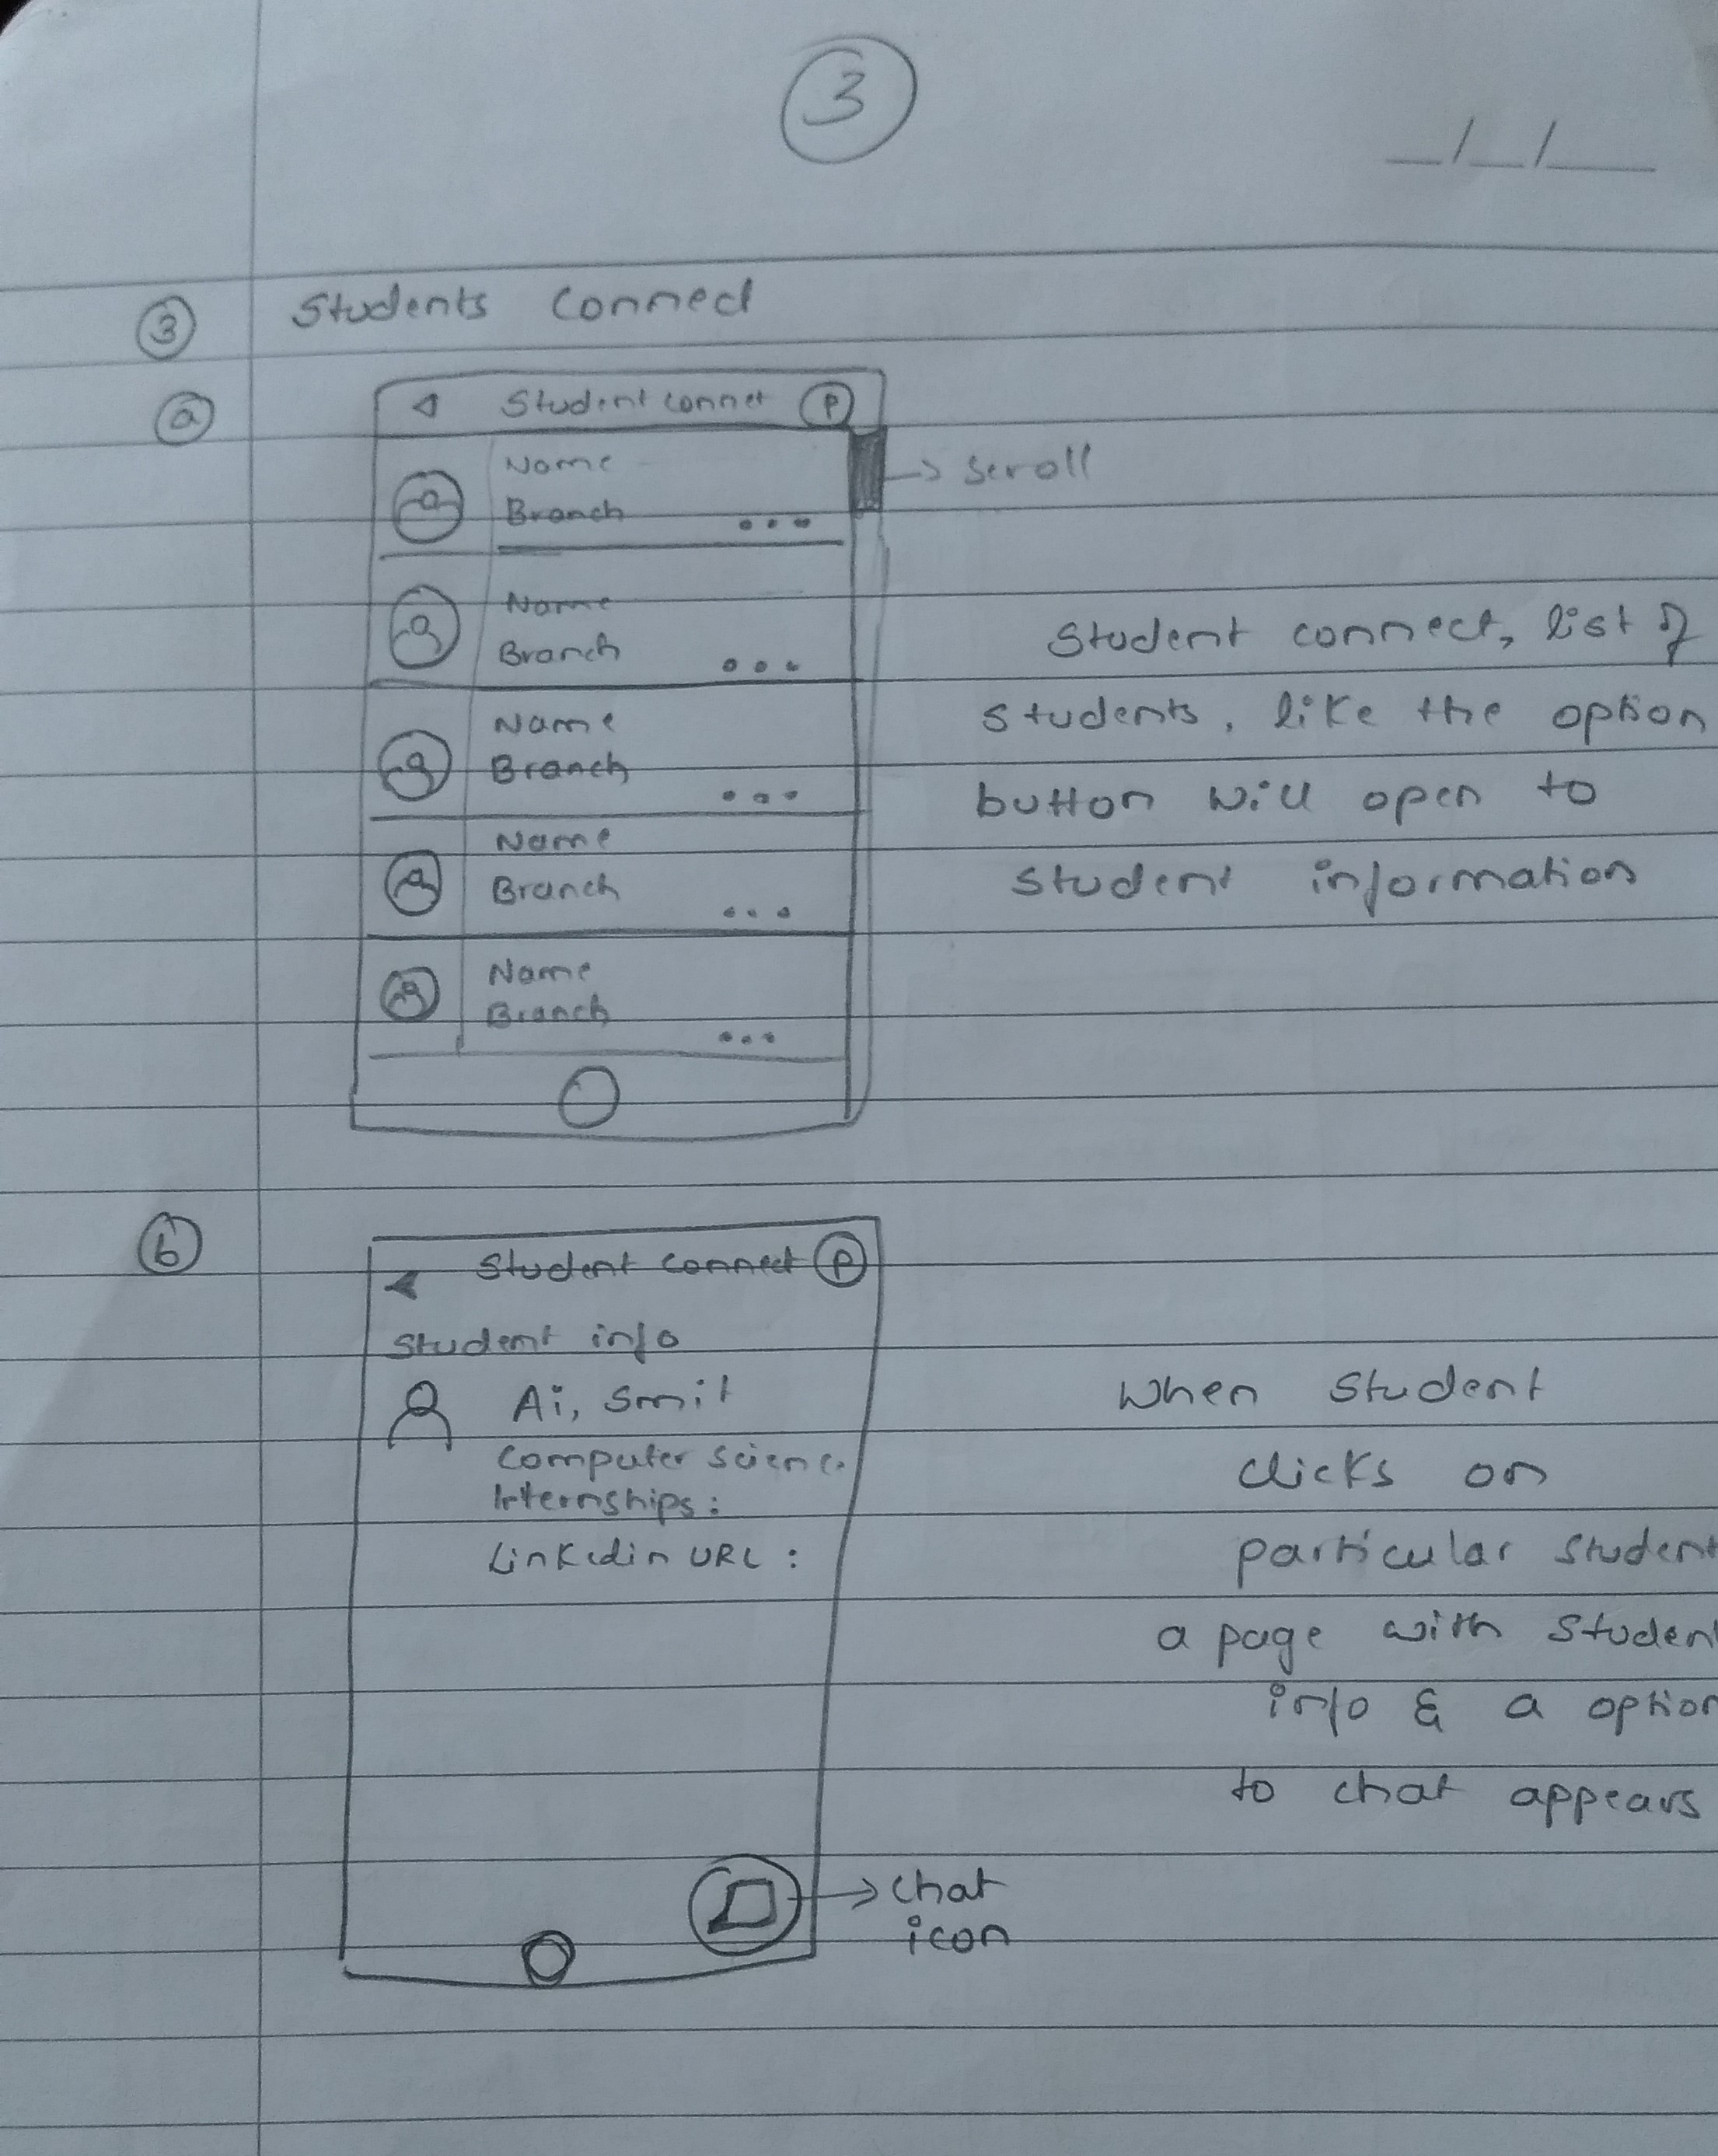 3
_/_/_
3 Students Connect
a
Student connet P
Name
Branch ...
→ scroll
Name
Branch ...
Name
Branch ...
Name
Branch ...
Name
Branch ...
Student connect, list of
students, like the option
button will open to
student information
b
Student connect P
Student info
Ai, Smit
Computer Scienc.
Internships:
Linkedin URL:
When student
clicks on
particular student
a page with Studen
info & a option
to chat appears
→ chat
icon